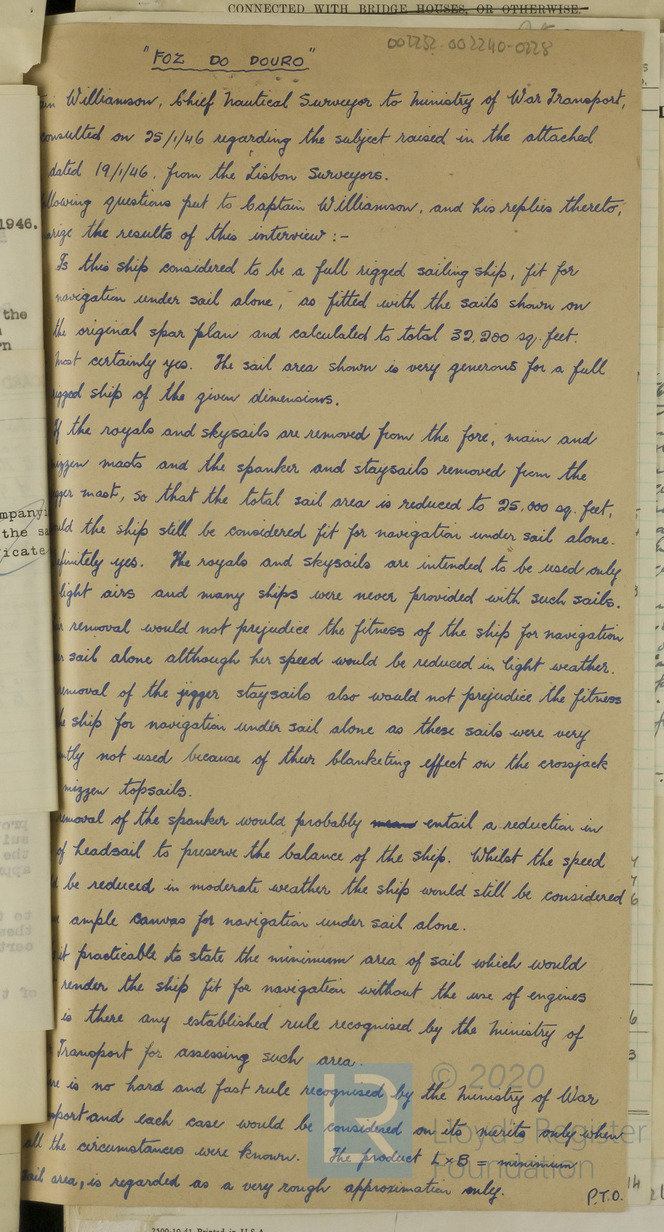 CONNECTED WITH BRIDGE HOUSES, OR OTHERWISE.
002232-002240-0228
"FOZ DO DOURO"
in Williamson, Chief Nautical Surveyor to Ministry of War Transport,
consulted on 25/1/46 regarding the subject raised in the attached
dated 19/1/46, from the Lisbon Surveyors.
llowing questions put to Captain Williamson, and his replies thereto,
arize the results of this interview :-
Is this ship considered to be a full rigged sailing ship, fit for
navigation under sail alone, as fitted with the sails shown on
the original spar plan and calculated to total 32,200 sq. feet.
Most certainly yes. The sail area shown is very generous for a full
rigged ship of the given dimensions.
If the royals and skysails are removed from the fore, main and
mizzen masts and the spanker and staysails removed from the
gger mast, so that the total sail area is reduced to 25,000 sq. feet,
uld the ship still be considered fit for navigation under sail alone.
efinitely yes. The royals and skysails are intended to be used only
light airs and many ships were never provided with such sails.
r removal would not prejudice the fitness of the ship for navigation
er sail alone although her speed would be reduced in light weather.
emoval of the jigger staysails also would not prejudice the fitness
he ship for navigation under sail alone as these sails were very
ntly not used because of their blanketing effect on the crossjack
mizzen topsails.
emoval of the spanker would probably mean entail a reduction in
of headsail to preserve the balance of the ship. Whilst the speed
d be reduced in moderate weather the ship would still be considered
e ample canvas for navigation under sail alone.
it practicable to state the minimum area of sail which would
render the ship fit for navigation without the use of engines
is there any established rule recognised by the Ministry of
Transport for assessing such area.
re is no hard and fast rule recognised by the Ministry of War
sport and each case would be considered on its merits only when
all the circumstances were known. The product L x B = minimum
sail area, is regarded as a very rough approximation only.
P.T.O.
1946.
the
n
mpanyi
the sa
icate
© 2020
Lloyd's Register
Foundation
LR
7500-10.41 Printed in U.S.A.